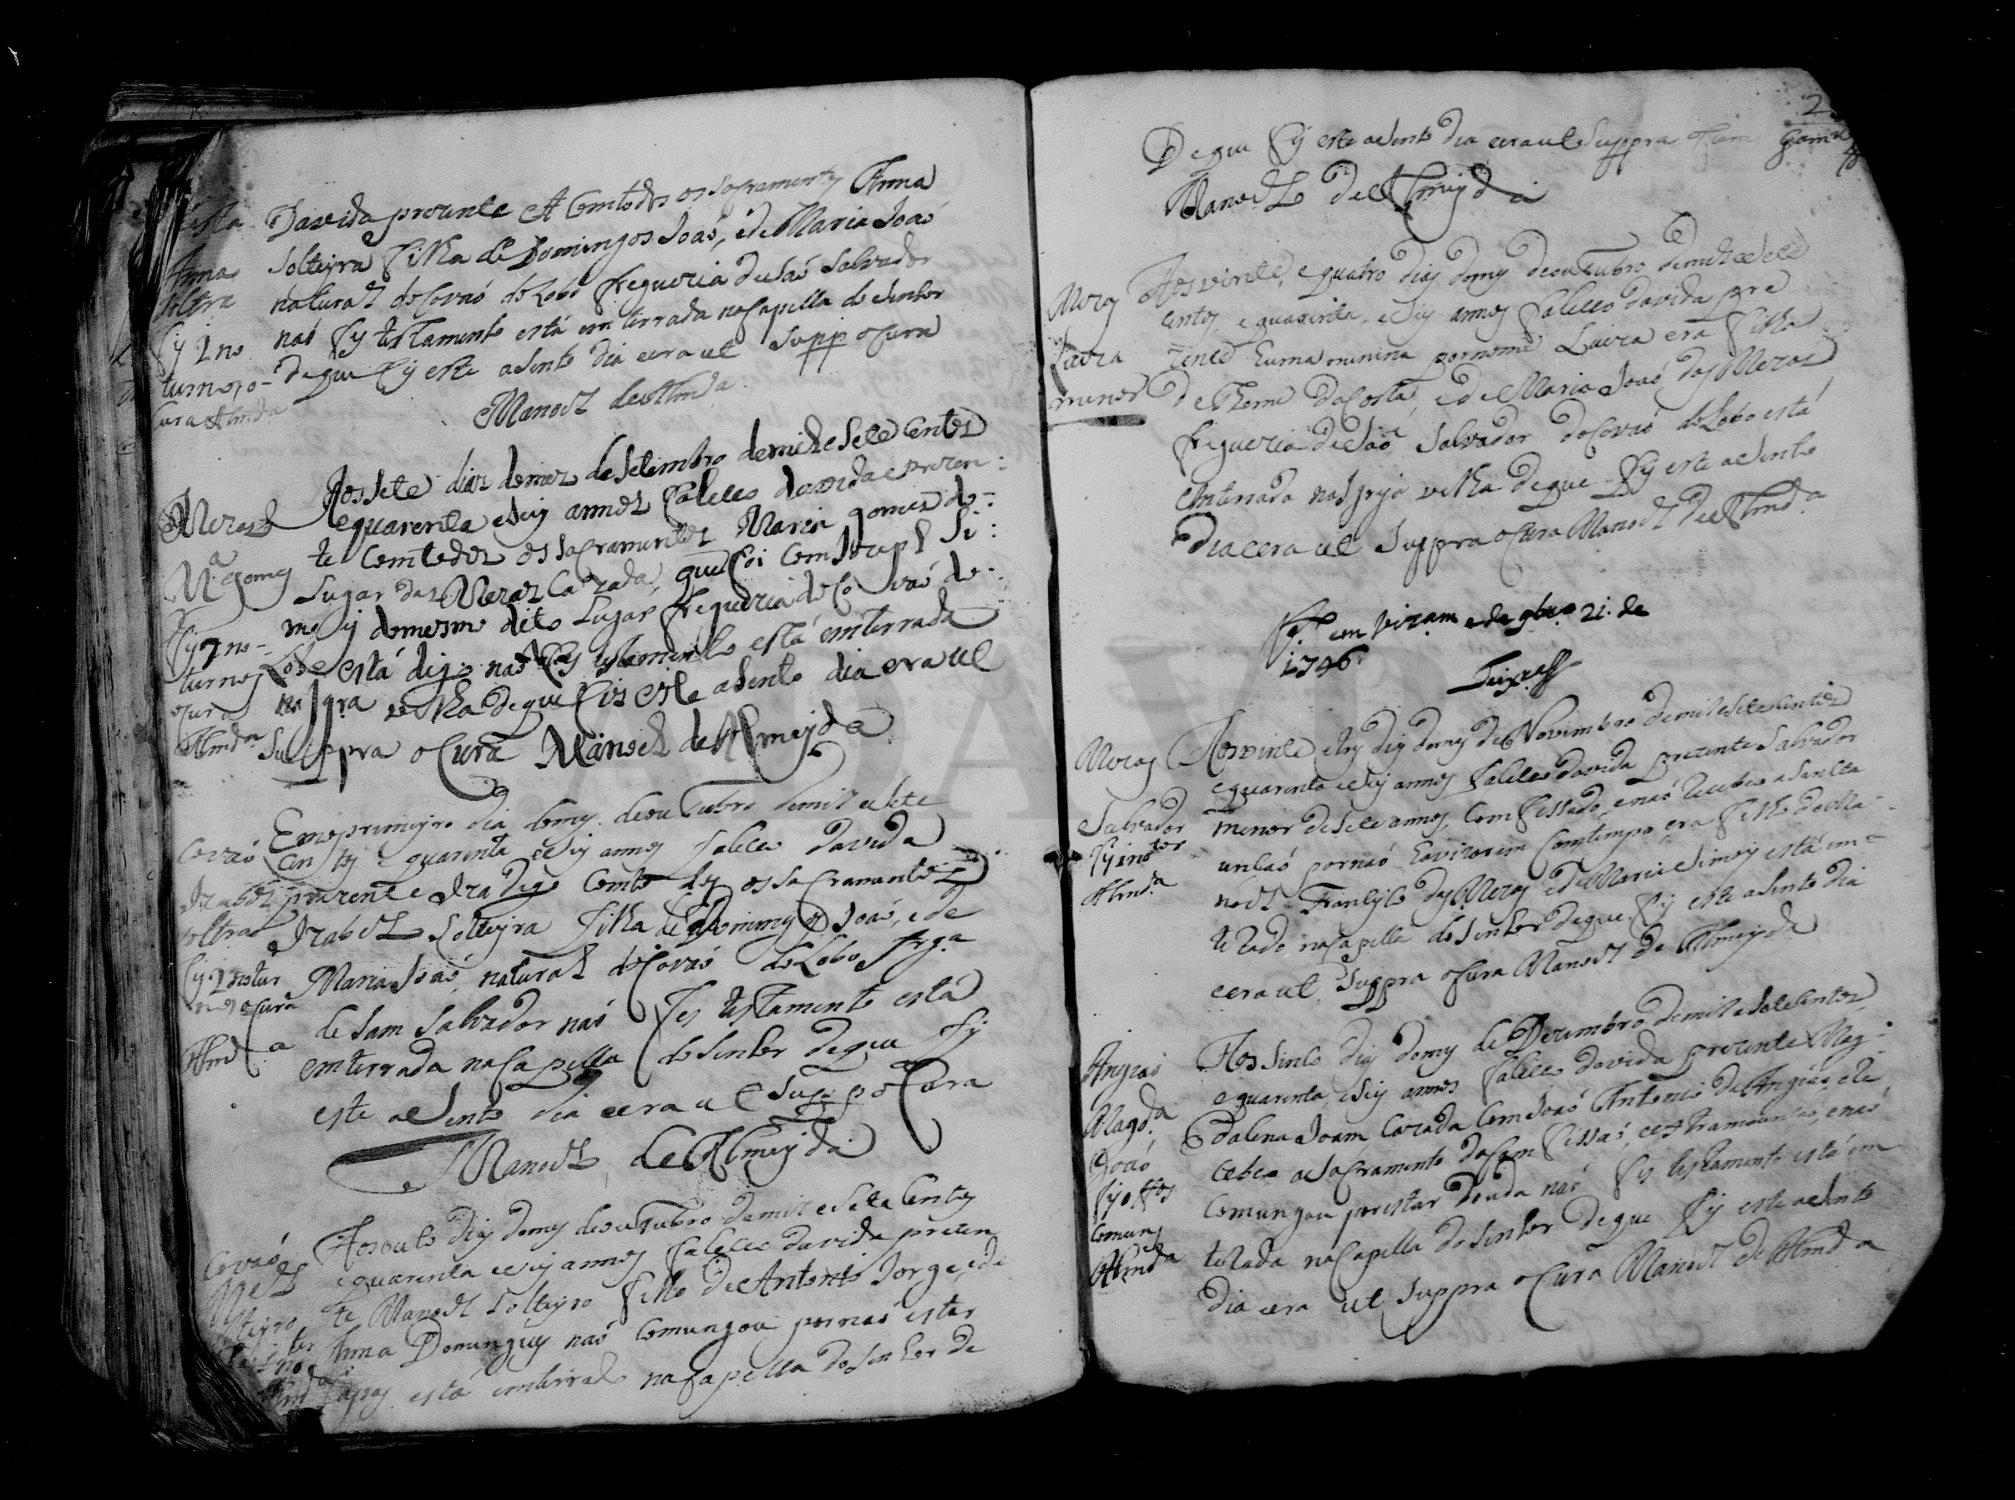 Davida prezente Com todos os sacramentos Anna
solteyra filha de Domingos Joaõ, e de Maria Joaõ
natural do Covaõ do Lobo freguezia de Saõ Salvador
naõ fes testamento está emterrada na Capella do Senhor
de que fis este asento dia era ut supp o Cura
Manoel de Almda
Anna
soltra
fis 2 no
turnos o
Cura Almda
Aos sete dias do mes de setembro de mil e sete Centos
e quarenta e seis annos faleceo da vida e prezen:
te Com todos os sacramentos Maria gomes do
Lugar das Mezas Cazada, que foi Com
mois do mesmo dito Lugar freguezia do Covaõ do
Lobo está digo naõ fes testamento está emterrada
na Igra velha de que fis este asento dia era ut
Suppra o Cura Manoel de Almeyda
Mezas
Ma gomes
fis 2 no
turnos
o Cura
Almda
Em o primeyro dia do mes de outubro de mil e sete
Centos e quarenta e seis annos faleceo da vida
prezente Iza digo Com todos os sacramentos
Izabel solteyra filha de Domingos Joaõ, e de
Maria Joaõ, natural do Covaõ do Lobo frga
de Sam Salvador naõ fes testamento está
emterrada na Capella do Senhor de que fis
este asento dia e era ut Supp o Cura
Manoel de Almeyda
Covaõ
Izabel
soltra
fis 2 notur
nos o Cura
Almda
Aos outo dias do mes de outubro de mil e sete Centos
e quarenta e seis annos faleceo da vida prezen
te Manoel solteyro filho de Antonio Jorge e de
Anna Domingues naõ Comungou por naõ ester
Capas está emterrado na Capella do Senhor de
Covaõ
Mel
De que fis este asento dia era ut Suppra o Cura
Manoel de Almeyda
Aos vinte, e quatro dias do mes de outubro de mil e sete
centos, e quarenta, e seis annos faleceo da vida pre
zente huma minina por nome Luiza era filha
de Thome da Costa, e de Maria Joaõ das Mezas
freguezia de Saõ Salvador do Covaõ do Lobo está
emterrada na Igrja velha de que fis este asento
dia e era ut Suppra o Cura Manoel de Almda
Mezas
Luiza
menor
em Vizam 21. de
1746
Aos vinte e tres dias do mes de Novimbro de mil e sete centos
e quarenta e seis annos faleceo da vida prezente Salvador
menor de sete annos, Comfessado, e naõ recebeo a santa
unçaõ por naõ havizarem Com tempo era filho de Ma
noel Francisco das Mezas e de Maria Simois está em
terado na Capella do Senhor de que fis este asento dia
e era ut Suppra o Cura Manoel de Almeyda
Mezas
Salvador
Almda
Aos sinco dias do mes de Dezembro de mil e sete Centos
e quarenta e seis annos faleceo da vida prezente Mag:
dalena Joam Cazada Com Joaõ Antonio de Angiaõ, e re
cebeo o sacramento da Com fissaõ, e extramunçaõ, e naõ
Comungou por estar douda naõ fes testamento está em
terada na Capella do Senhor de que fis este asento
dia e era ut Suppra o Cura Manoel de Almda
Angiaõ
Magda
Joaõ
Almda